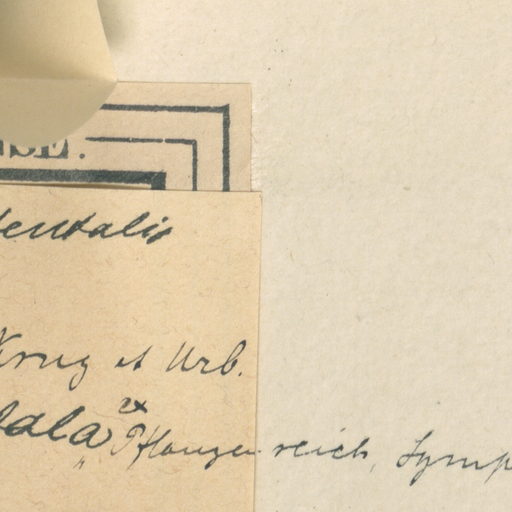 NSE.
entalis
Krug et Urb.
ex
dala „ Pflanzenreich, Symp